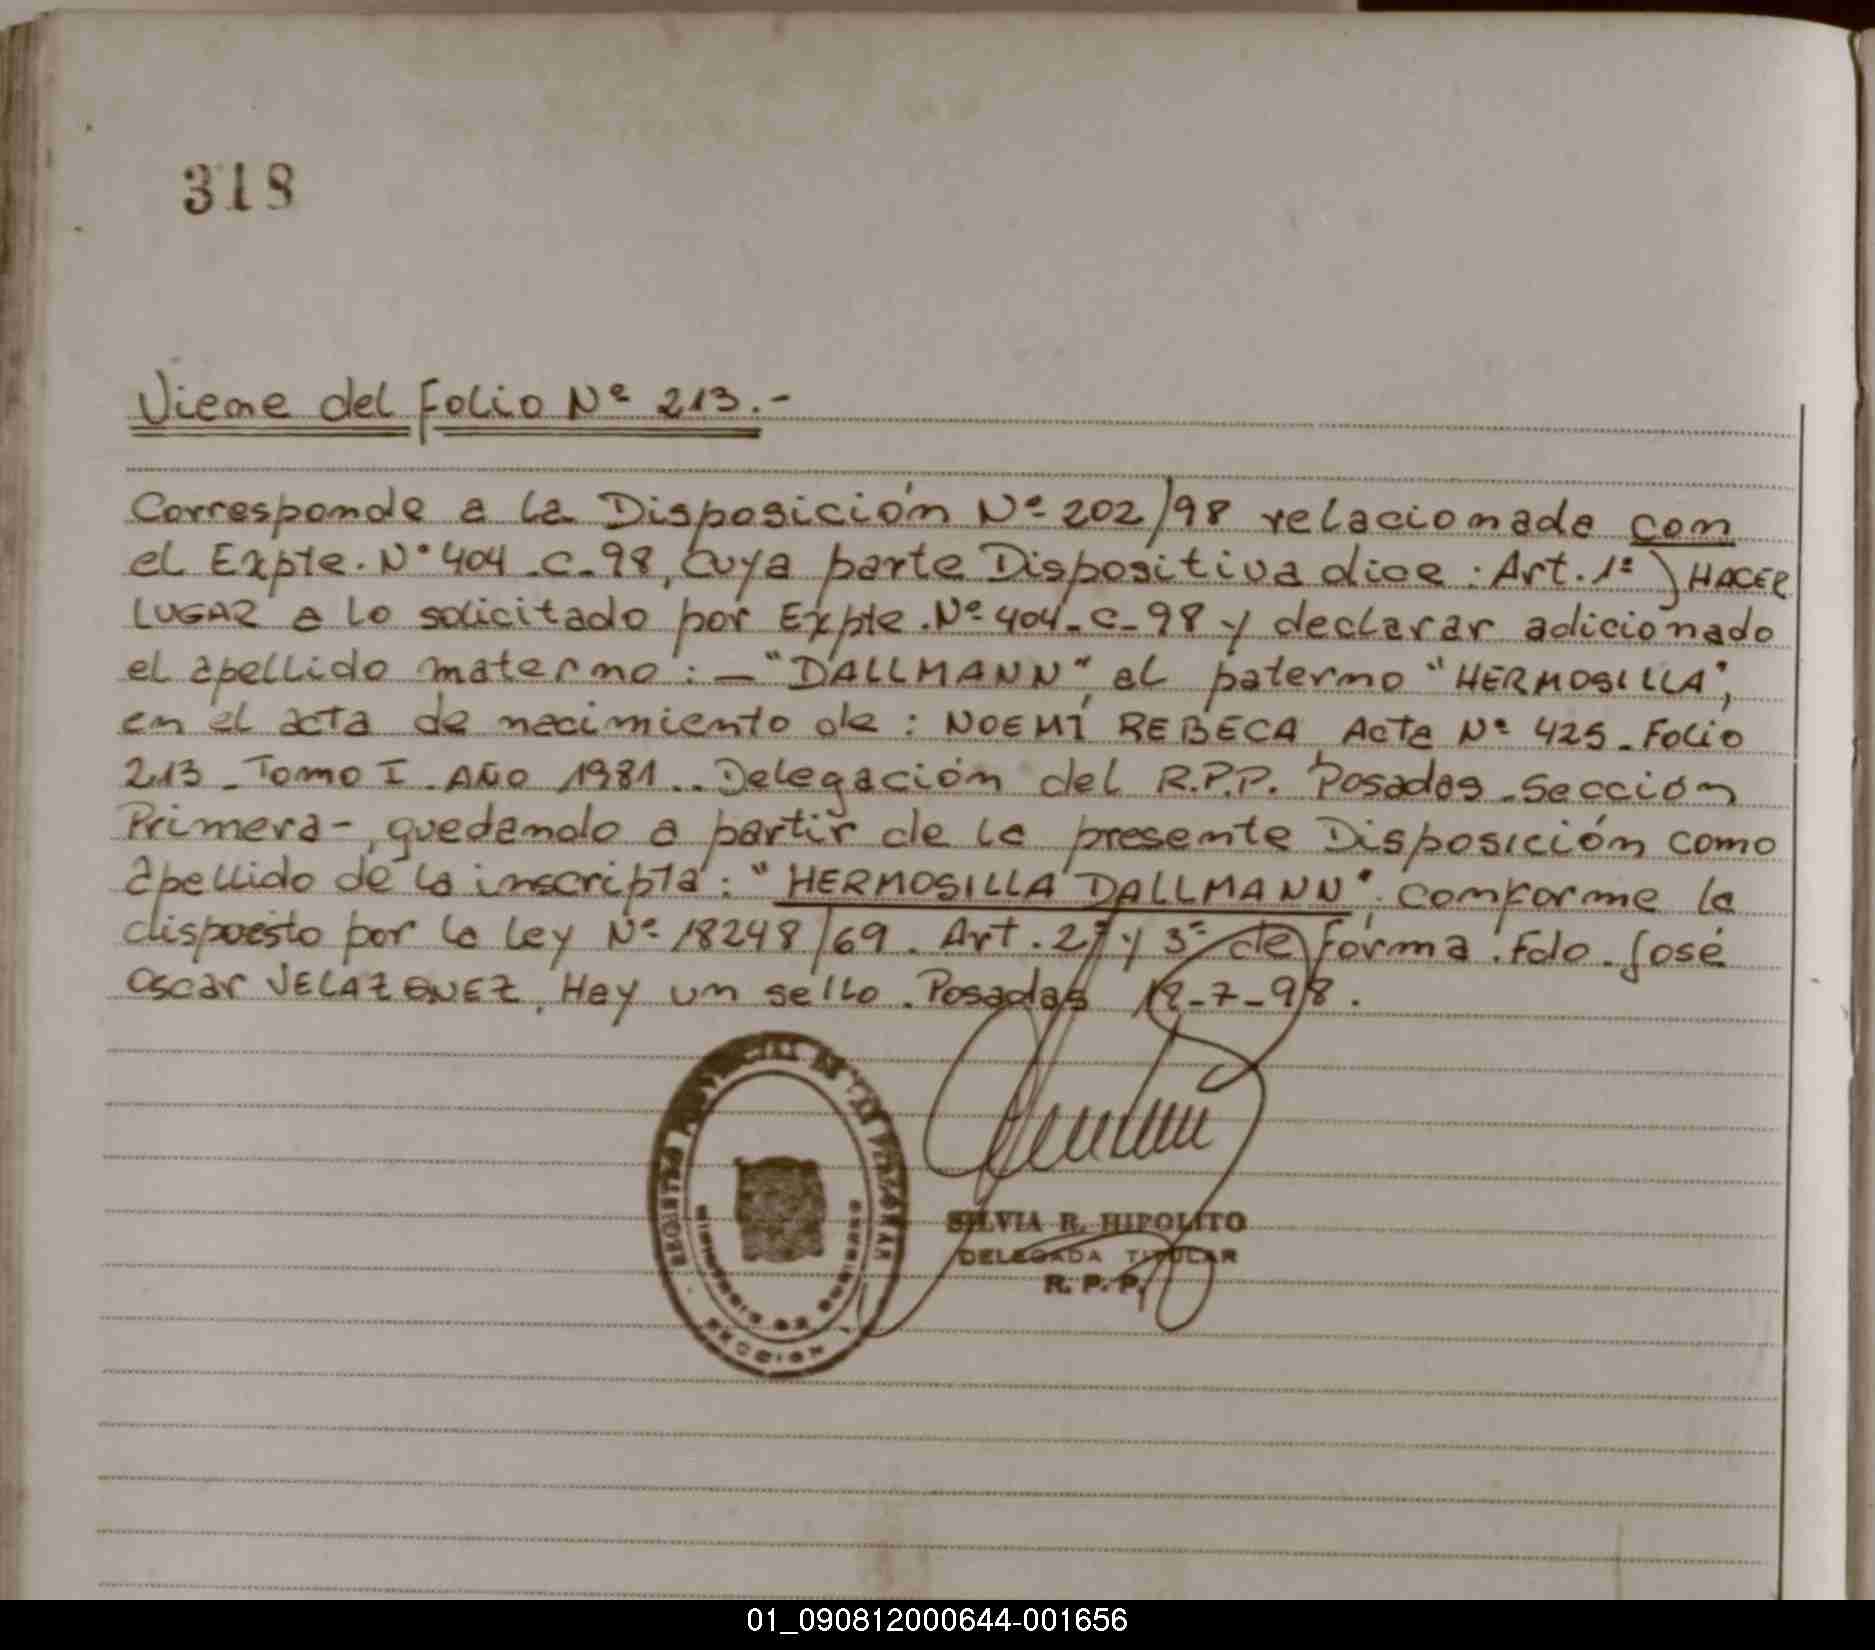 318
Viene del Folio Nº 213.-
Corresponde a la Disposición Nº 202/98 relacionada con
el Expte. Nº 404-C-98, cuya parte Dispositiva dice: Art. 1º) HACER
LUGAR a lo solicitado por Expte. Nº 404-C-98 y declarar adicionado
el apellido materno: - "DALLMANN", al paterno "HERMOSILLA",
en el acta de nacimiento de: NOEMÍ REBECA, Acta Nº 425. Folio
213 - Tomo I - AÑO 1981.. Delegación del R.P.P. Posadas - Sección
Primera -, quedando a partir de la presente Disposición como
apellido de la inscripta: "HERMOSILLA DALLMANN", conforme lo
dispuesto por la ley Nº 18248/69. Art. 2º y 3º de Forma. Fdo. José
Oscar VELAZQUEZ. Hay un sello. Posadas -7-98.
REGISTRO PROVINCIAL DE LAS PERSONAS
MINISTERIO DE GOBIERNO
SECCION
SILVIA R. HIPOLITO
DELEGADA TITULAR
R. P. P.
01_090812000644-001656